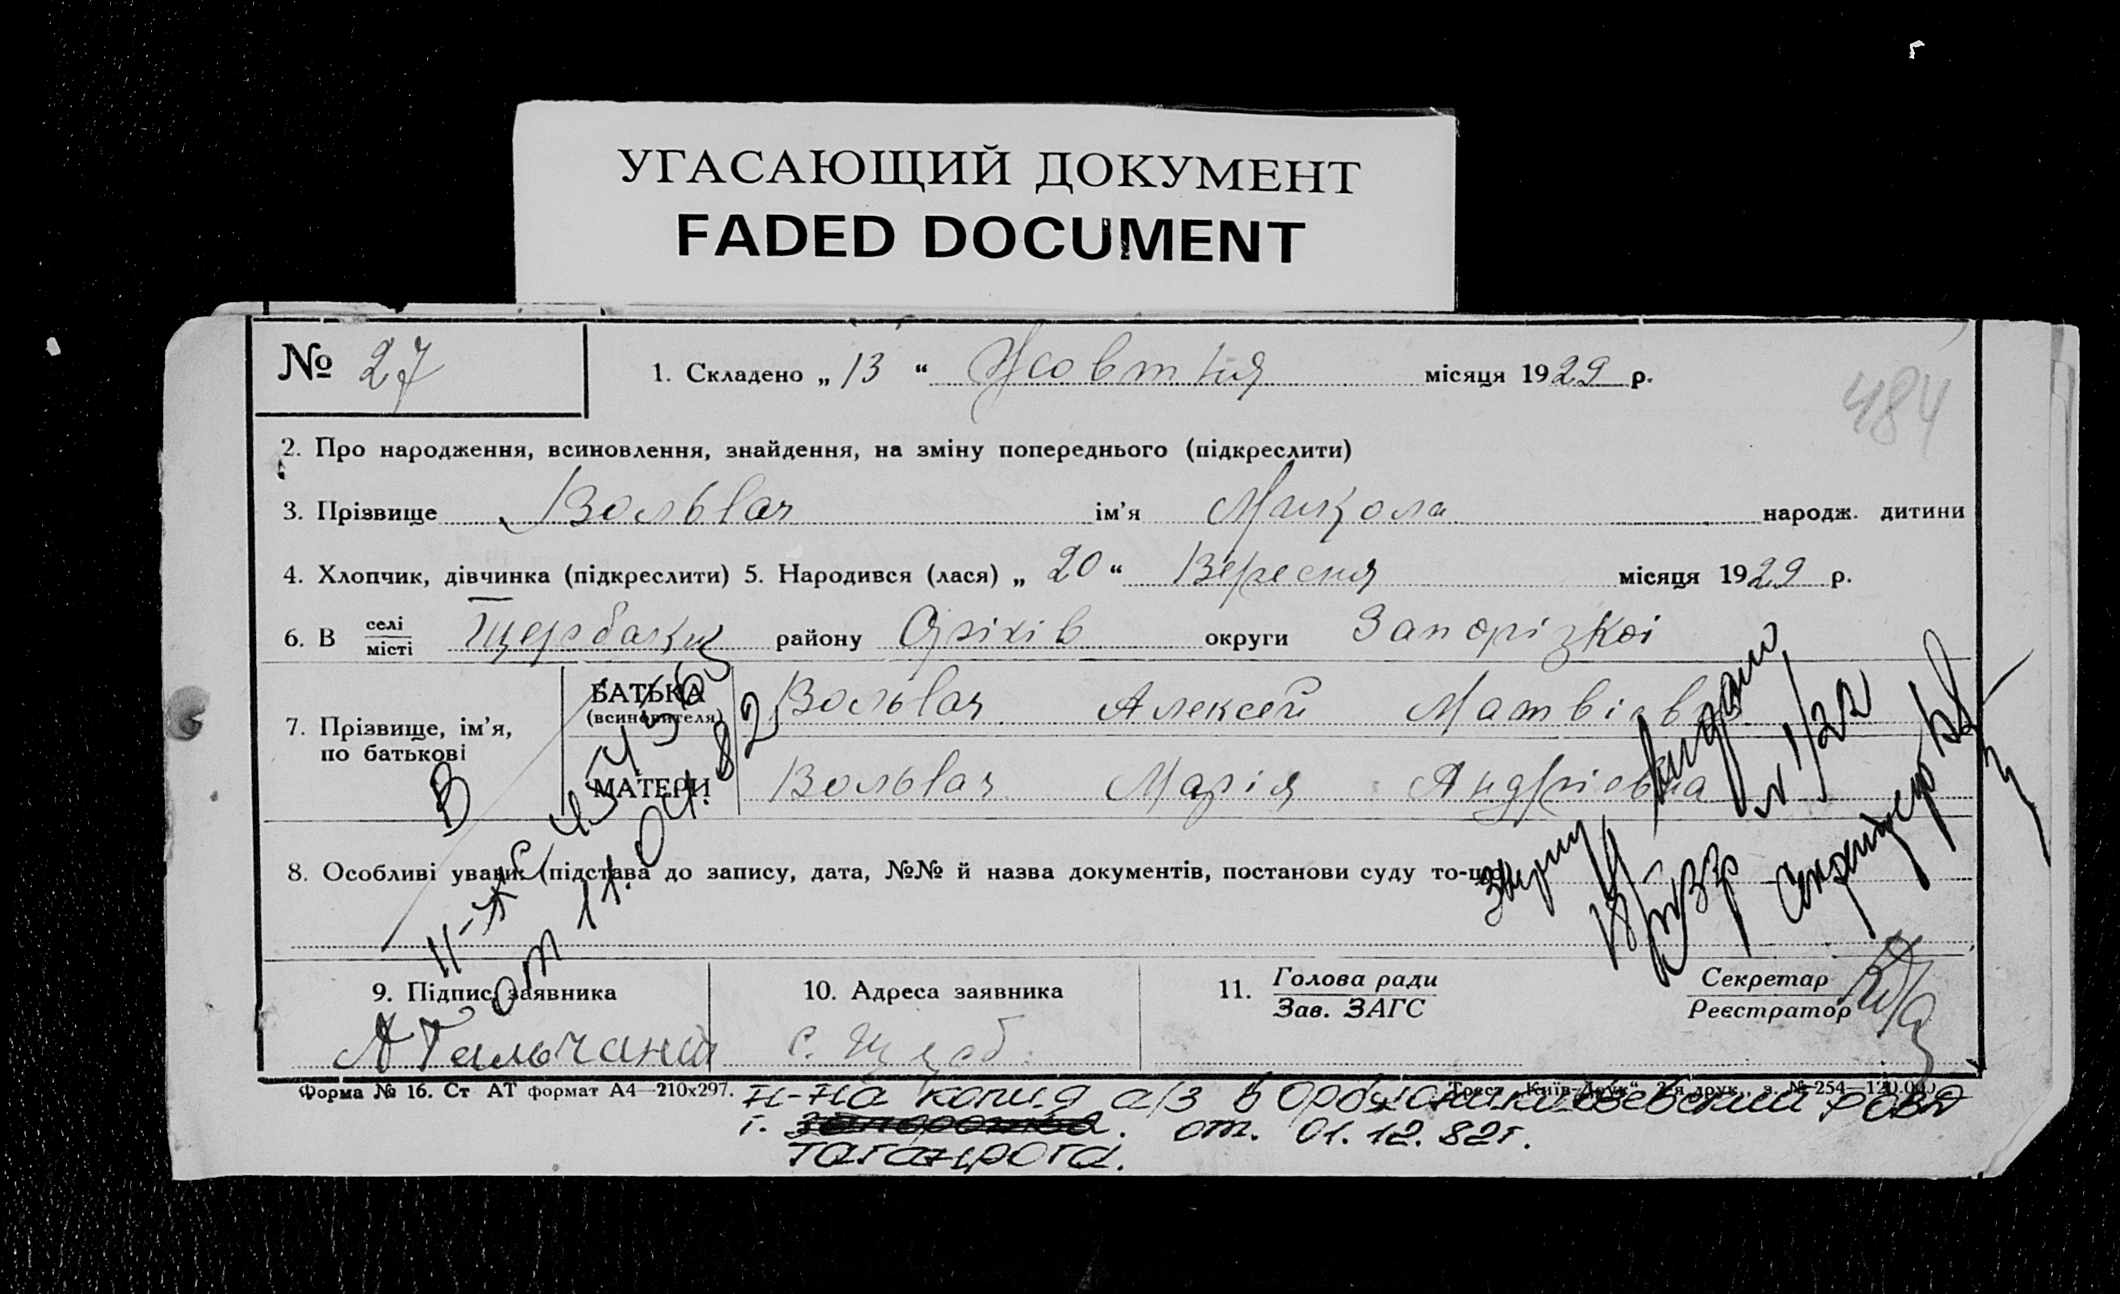 УГАСАЮЩИЙ ДОКУМЕНТ
FADED DOCUMENT
№ 27
1. Складено „ 13 “ Жовтня місяця 1929 р.
484
2. Про народження, всиновлення, знайдення, на зміну попереднього (підкреслити)
3. Прізвище Вольвач ім'я Микола народж. дитини
4. Хлопчик, дівчинка (підкреслити) 5. Народився (лася) „ 20 “ Вересня місяця 1929 р.
6. В селі/місті Щербаки району Оріхів округи Запорізкої
7. Прізвище, ім'я, по батькові
БАТЬКА (всиновителя) Вольвач Алексей Матвієв
МАТЕРИ Вольвач Марія Андрієвна
8. Особливі уваги: (підстава до запису, дата, №№ й назва документів, постанови суду то-що)
от 11.04.82
9. Підпис заявника
10. Адреса заявника
11. Голова ради / Зав. ЗАГС
Секретар / Реєстратор
с. Щерб.
Форма № 16. Ст АТ формат А4—210х297.
Трест „Київ-Друк“
копия а/з в
г. Таганрога. от. 01.12.82г.